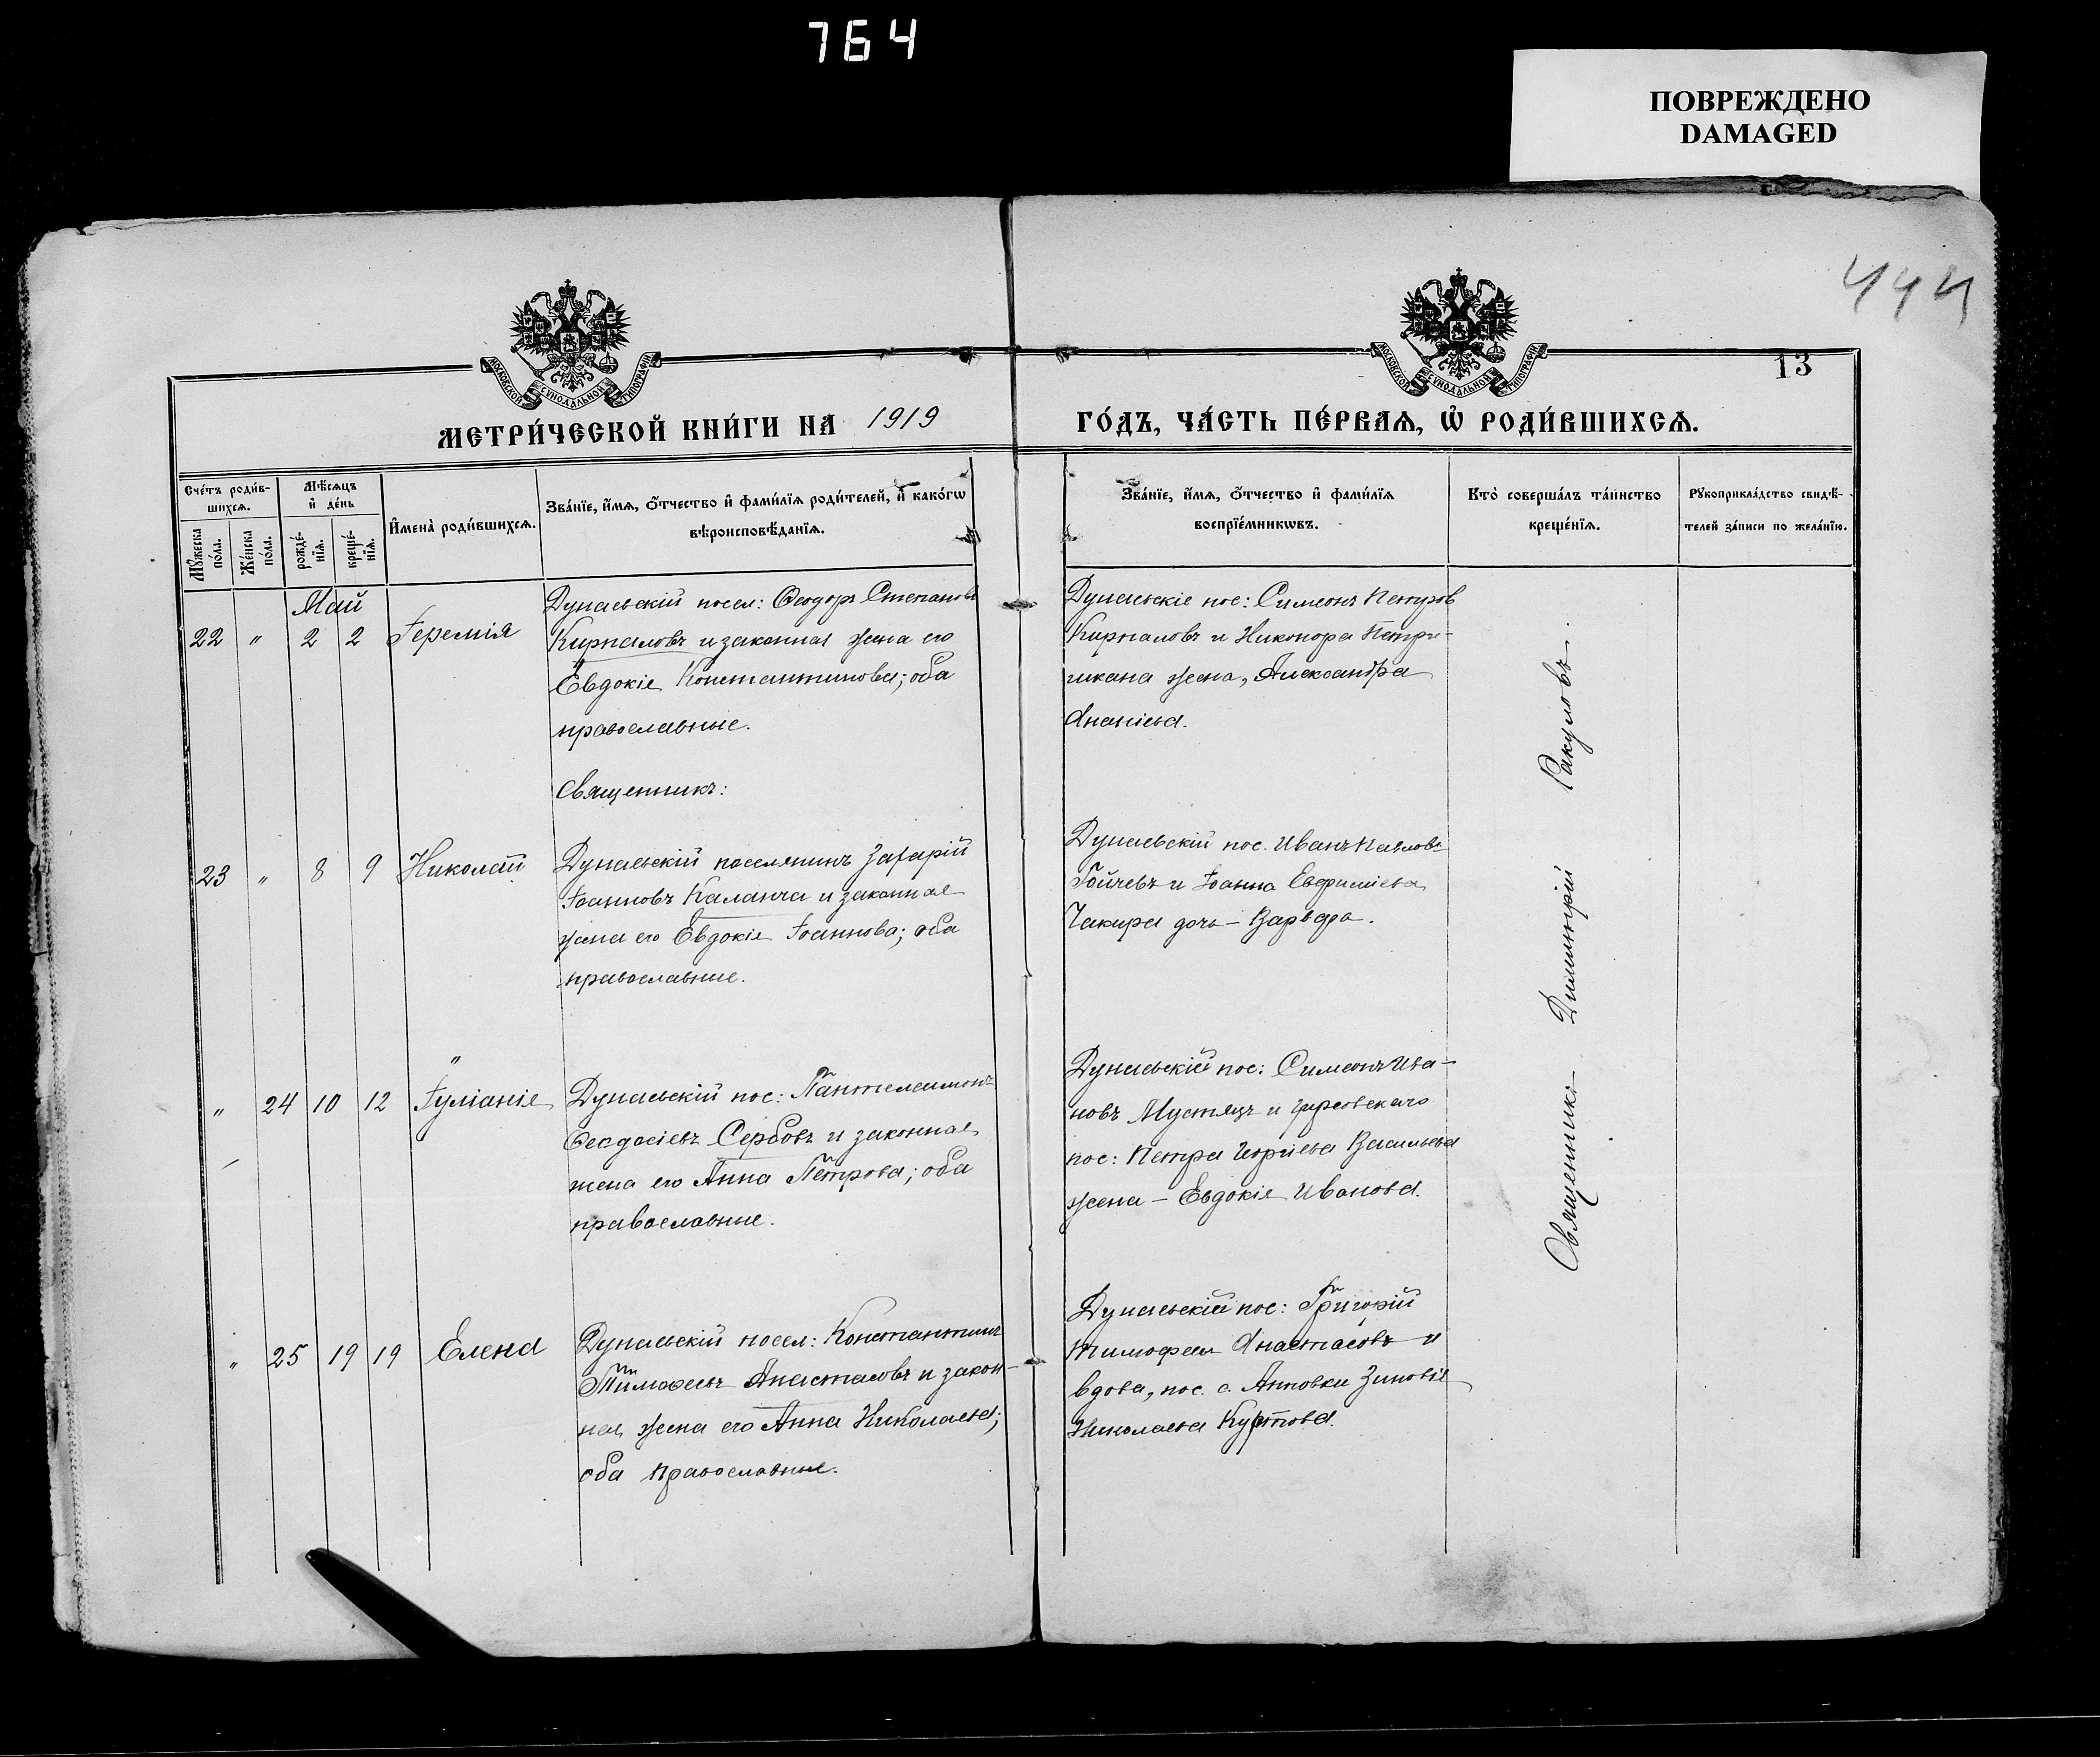 764
ПОВРЕЖДЕНО
DAMAGED
444
13
МОСКОВСКОЙ СѴНОДАЛЬНОЙ ТИПОГРАФІИ
МОСКОВСКОЙ СѴНОДАЛЬНОЙ ТИПОГРАФІИ
МЕТРИ́ЧЕСКОЙ КНИ́ГИ НА 1919
ГО́ДЪ, ЧА́СТЬ ПЕ́РВАѦ, Ѡ҆ РОДИ́ВШИХСѦ.
Сче́тъ роди́в-
шихсѧ.
Мꙋ́жеска по́ла.
Же́нска по́ла.
Мѣ́сѧцъ и҆ де́нь
рожде́-нїѧ.
креще́-нїѧ.
И҆мена̀ роди́вшихсѧ.
Зва́нїе, и҆́мѧ, о҆́тчество и҆ фами́лїѧ роди́телей, и҆ како́гѡ
вѣроисповѣ́данїѧ.
Зва́нїе, и҆́мѧ, о҆́тчество и҆ фами́лїѧ
воспрїе́мникѡвъ.
Кто̀ соверша́лъ та́инство
креще́нїѧ.
Рꙋкоприкла́дство свидѣ́-
телей за́писи по жела́нїю.
Май
22 " 2 2 Іеремія
Дунаевскій посел: Ѳеодоръ Степановъ
Кирпаловъ и законная жена его
Евдокія Константинова; оба
православные.
Священникъ:
Дунаевскіе пос: Симеонъ Петров
Кирпаловъ и Никонора Петри-
жена, Александра
Ананіева.
23 " 8 9 Николай
Дунаевскій поселянинъ Захарій
Іоанновъ Каланча и законная
жена его Евдокія Іоаннова; оба
православные.
Дунаевскій пос. Иванъ Павловъ
Гойчевъ и Іоанна Евфиміева
Чакира дочь – Варвара.
" 24 10 12 Іуліанія
Дунаевскій пос: Пантелеимонъ
Ѳеодосіевъ Сербовъ и законная
жена его Анна Петрова; оба
православные.
Дунаевскій пос: Симеонъ Ива-
новъ Мустяцъ и
пос: Петра Васильева
жена – Евдокія Иванова.
" 25 19 19 Елена
Дунаевскій посел: Константинъ
Тимоѳеевъ Анастасовъ и закон-
ная жена его Анна Николаева;
оба православные.
Дунаевскій пос: Григорій
Тимофеевъ Анастасовъ и
вдова, пос. с. Анновки Зиновія
Николаева
Священникъ Димитрій Ракуловъ.